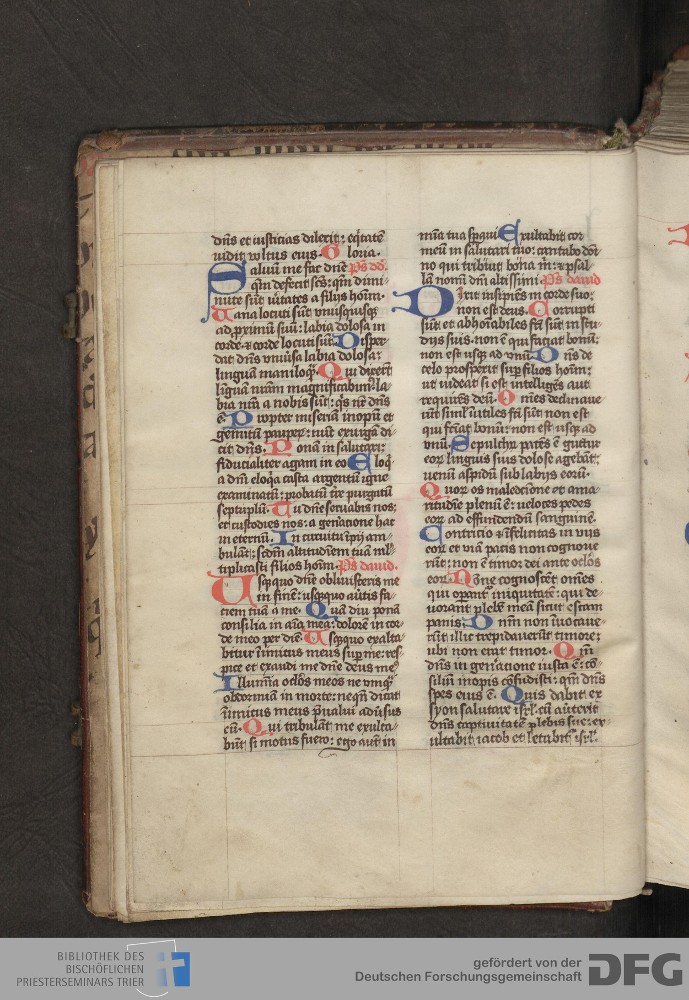 dn̄s et iusticias dilexit: eq̄tatē
uidit vultus eius. G loria.
Saluū me fac dn̄e Ps dd.
qm̄ defecit sc̄s: qm̄ dimi-
nute sūt ūitates a filijs hoīm.
Uana locuti sūt vnusquisq̄
ad ꝓximū suū: labia dolosa in
corde ⁊ corde locuti sūt. Disper
dat dn̄s vniūsa labia dolosa:
linguā maniloq̄. Qui dixerūt
linguā nr̄am magnificabim᷒ la
bia nr̄a a nobis sūt: q̄s nr̄ dn̄s
ē. Propter miseriā inopū et
gemitū pauper̄: nūc exurgā di
cit dn̄s. Ponā in salutari:
fiducialiter agam in eo Eloq̄
a dn̄i eloq̄a casta argentū igne
examinatū: probatū tr̄e purgatū
septuplū. Tu dn̄e seruabis nos:
et custodies nos: a gen̄atione hac
in eternū. In circuitu īpij am-
bulāt: scdm̄ altitudinem tuā ml̄
tiplicasti filios hoīm. Ps dauid.
Usquequo dn̄e obliuisceris me
in finē: usq̄quo aūtis fa
ciem tuā a me. Quā diu ponā
consilia in aīa mea: dolorē in cor
de meo per diē. Usq̄quo exalta
bitur īimicus meus sup̄ me: res
pice et exaudi me dn̄e deus me᷒
Illumīa oclōs meos ne vmq̄
obdormiā in morte: neq̄n̄ dicat
īnimicus meus p̄ualui adūsus
eū. Qui tribulāt me exulta-
būt si motus fuero: ego aūt in
mīa tua sp̄aui Exultabit cor
meū in salutari tuo: cantabo dōi
no qui tribuit bona m̄: ⁊ psal
lā noīi dn̄i altissimi. Ps dauid
Dixit insipiēs in corde suo:
non est deus. Corrupti
sūt et abhoīabiles fc̄i sūt in stu-
dijs suis. non ē qui faciat bonū:
non est usq̄ ad vnū. Dn̄s de
celo prospexit sup̄ filios hoīm:
ut uideat si est intelligēs aut
requirēs deū. Omēs declinaue-
rūt siml̄ īutiles fc̄i sūt: non est
qui faciat bonū: non est usq̄ ad
vnū. Sepulchr̄ patēs ē guttur
eor̄ linguis suis dolose agebāt:
uenū aspidū sub labijs eorū.
Quor̄ os maledictione et ama-
ritudīe plenū ē: ueloces pedes
eor̄ ad effundendū sanguinē.
Contricio ⁊ īfelicitas in vijs
eor̄ et viā pacis non cognoue
rūt: non ē timor dei ante oclōs
eor̄. Nōne cognoscēt omēs
qui operāt iniquitatē: qui de-
uorant plebē meā sicut escam
panis. Dn̄m non īuocaue-
rūt illic trepidauerūt timore:
ubi non erat timor. Qm̄
dn̄s in gen̄atione iusta ē: cō-
siliū inopis cōfudisti: qm̄ dn̄s
spes eius ē. Quis dabit ex
syon salutare isrl̄. cū auterit
dn̄s captiuitatē plebis sue: ex-
ultabit iacob et letabit̄ isrl̄.
BIBLIOTHEK DES
BISCHÖFLICHEN
PRIESTERSEMINARS TRIER
gefördert von der
Deutschen Forschungsgemeinschaft DFG